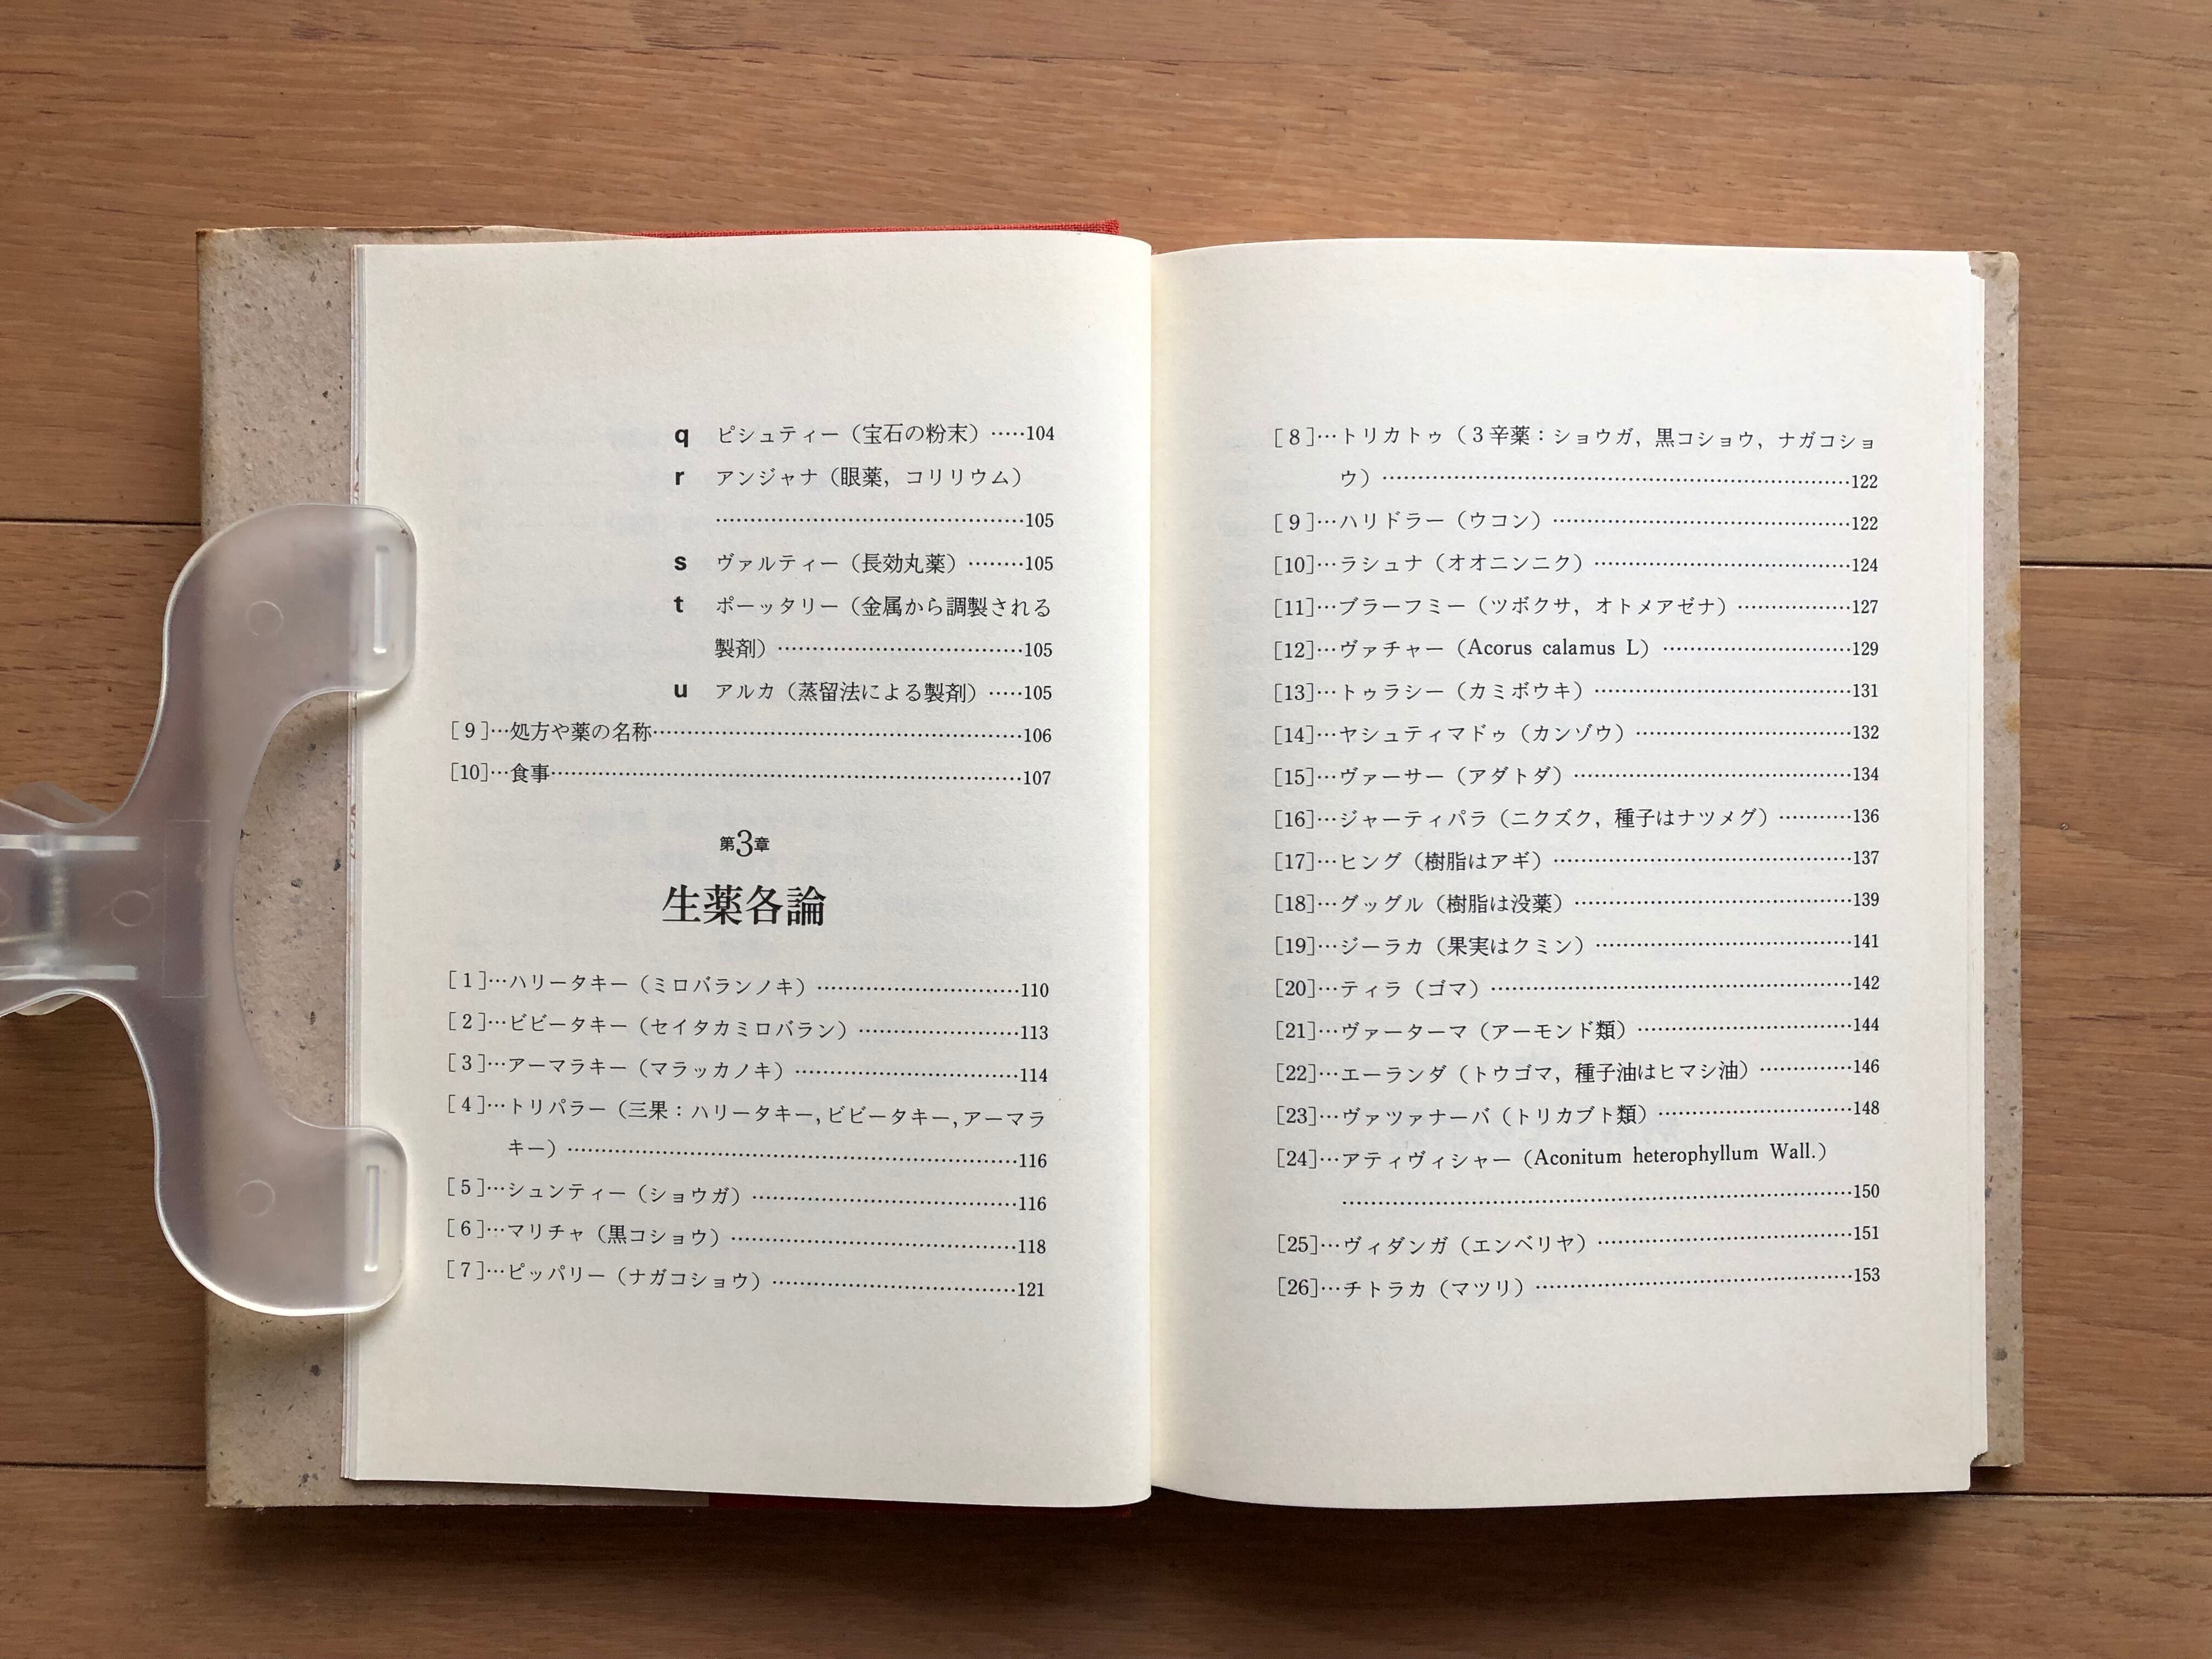 q ピシュティー（宝石の粉末）·····104
r アンジャナ（眼薬，コリリウム）
··············································105
s ヴァルティー（長効丸薬）········105
t ポーッタリー（金属から調製される
製剤）····································105
u アルカ（蒸留法による製剤）·····105
［9］…処方や薬の名称·······················································106
［10］…食事·····································································107
第3章
生薬各論
［1］…ハリータキー（ミロバランノキ）······························110
［2］…ビビータキー（セイタカミロバラン）························113
［3］…アーマラキー（マラッカノキ）·································114
［4］…トリパラー（三果：ハリータキー，ビビータキー，アーマラ
キー）···································································116
［5］…シュンティー（ショウガ）·······································116
［6］…マリチャ（黒コショウ）··········································118
［7］…ピッパリー（ナガコショウ）····································121
［8］…トリカトゥ（3辛薬：ショウガ，黒コショウ，ナガコショ
ウ）······································································122
［9］…ハリドラー（ウコン）············································122
［10］…ラシュナ（オオニンニク）······································124
［11］…ブラーフミー（ツボクサ，オトメアゼナ）·················127
［12］…ヴァチャー（Acorus calamus L）····························129
［13］…トゥラシー（カミボウキ）······································131
［14］…ヤシュティマドゥ（カンゾウ）································132
［15］…ヴァーサー（アダトダ）·········································134
［16］…ジャーティパラ（ニクズク，種子はナツメグ）···········136
［17］…ヒング（樹脂はアギ）············································137
［18］…グッグル（樹脂は没薬）·········································139
［19］…ジーラカ（果実はクミン）······································141
［20］…ティラ（ゴマ）·····················································142
［21］…ヴァーターマ（アーモンド類）································144
［22］…エーランダ（トウゴマ，種子油はヒマシ油）··············146
［23］…ヴァツァナーバ（トリカブト類）·····························148
［24］…アティヴィシャー（Aconitum heterophyllum Wall.）
···········································································150
［25］…ヴィダンガ（エンベリヤ）······································151
［26］…チトラカ（マツリ）···············································153